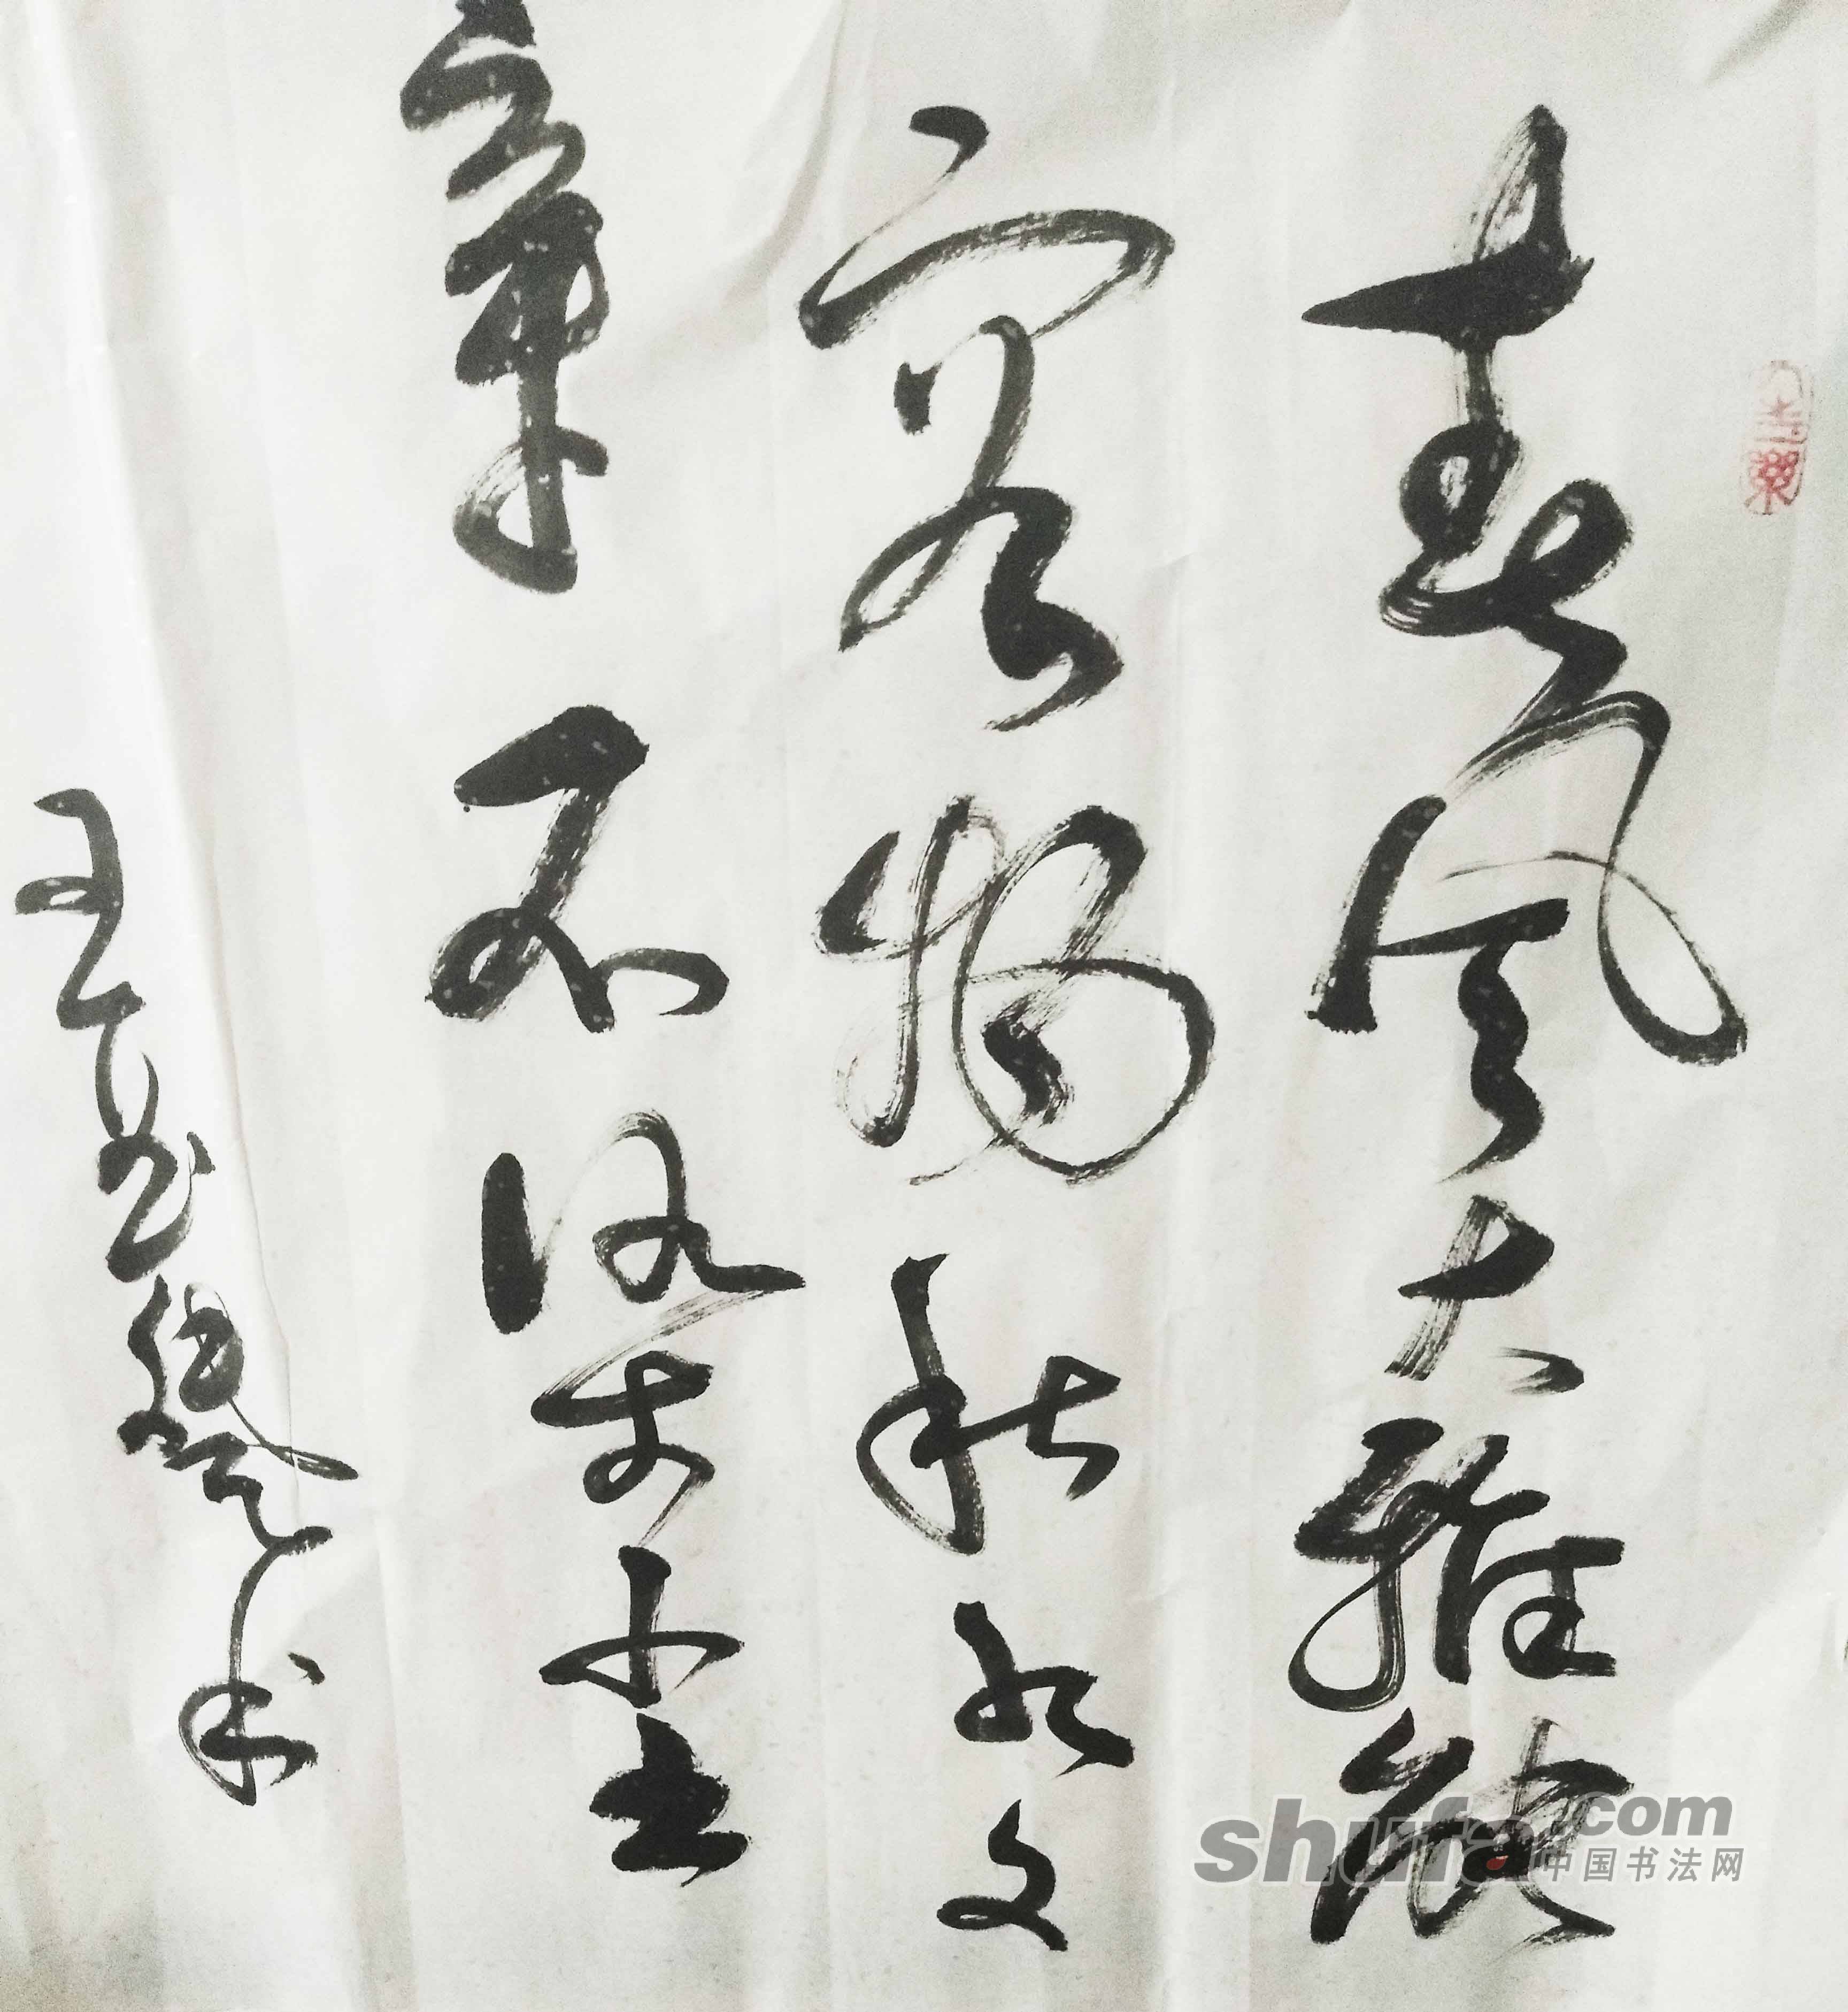 春风大雅能
容物秋水文
章不染尘
王
书
shufa.com
中国书法网